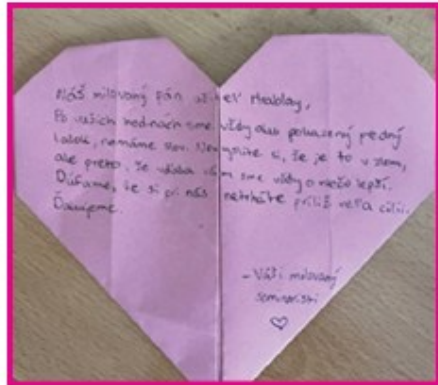 Náš milovaný pán učiteľ Hrablay,
Po vašich hodinách sme vždy ako pokazený predný
, nemáme slov. Nemyslite si, že je to v zlom,
ale preto, že vďaka vám sme vždy o niečo lepší.
Dúfame, že si pri nás netrháte príliš veľa .
Ďakujeme.
- Váši milovaný
seminaristi
♡